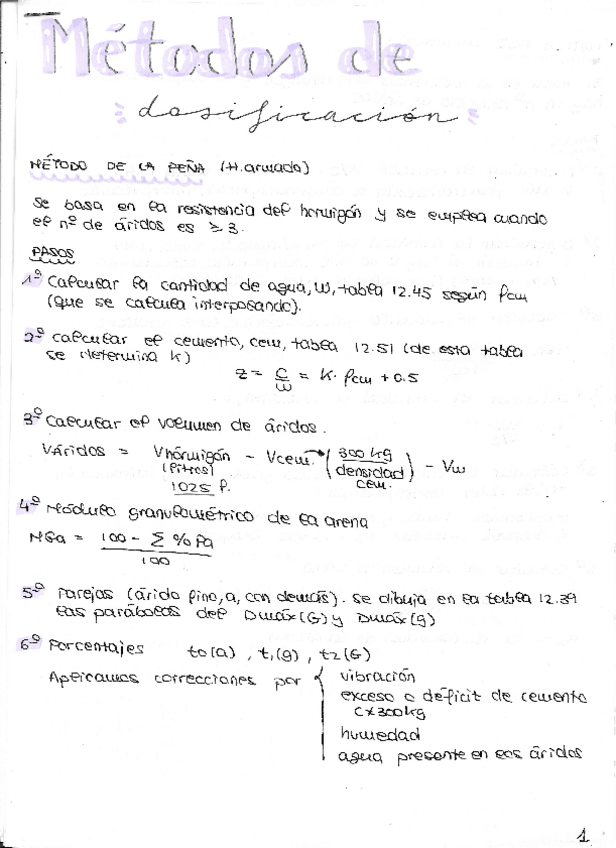 Métodos de
dosificación
MÉTODO DE LA PEÑA (H. armado)
Se basa en la resistencia del hormigón y se emplea cuando
el nº de áridos es ≥ 3.
PASOS
1º Calcular la cantidad de agua, W, tabla 12.45 según fcm
(que se calcula interpolando).
2º Calcular el cemento, cem, tabla 12.51 (de esta tabla
se determina K)
z = C/W = K · fcm + 0.5
3º Calcular el volumen de áridos.
Váridos = Vhormigón - Vcem. → (300 kg / densidad cem.) - Vw
(litros)
1025 l.
4º Módulo granulométrico de la arena
MGa = 100 - Σ % Pa / 100
5º Parejas (árido fino, a, con demás). Se dibuja en la tabla 12.39
las parábolas del Dmáx (G) y Dmáx (g)
6º Porcentajes t0 (a) , t1 (g) , t2 (G)
Aplicamos correcciones por { vibración
exceso o déficit de cemento
C ≠ 300 kg
humedad
agua presente en los áridos
1